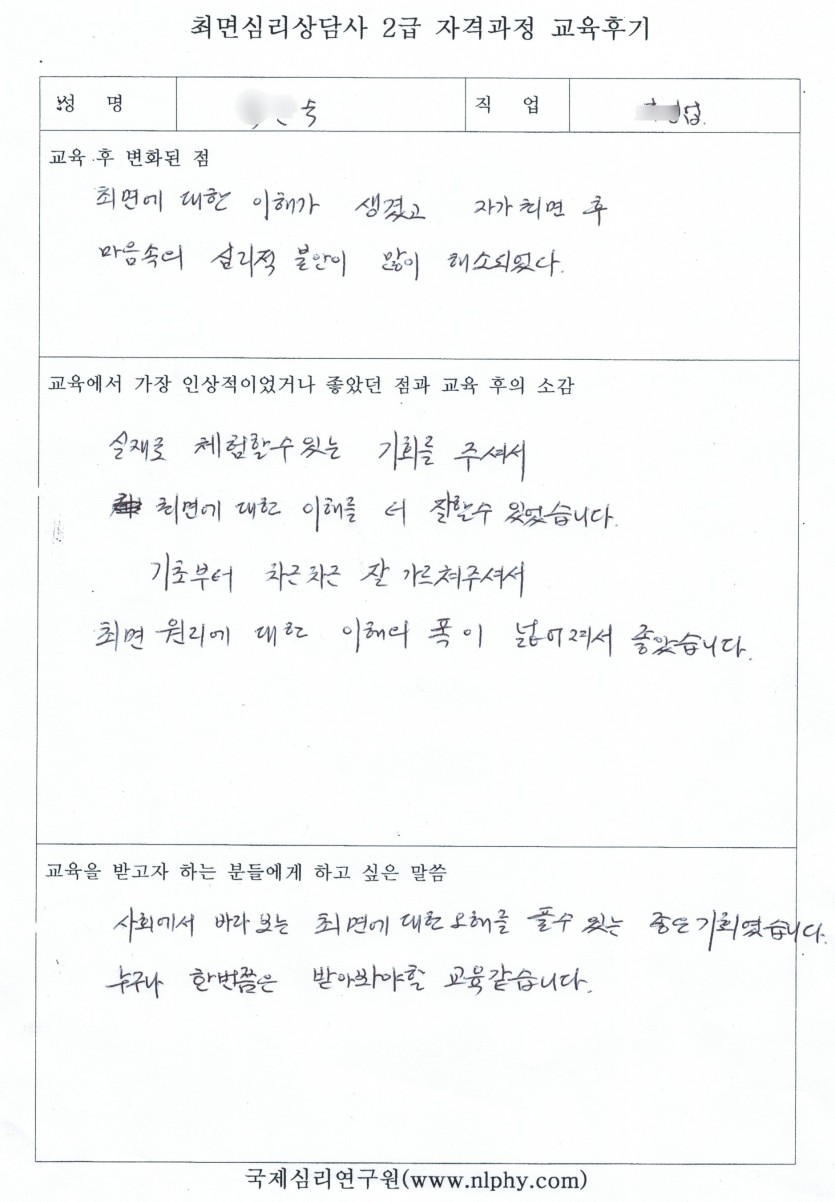 최면심리상담사 2급 자격과정 교육후기
성 명 숙 직 업
교육 후 변화된 점
최면에 대한 이해가 생겼고 자가최면 후
마음속의 심리적 불안이 많이 해소되었다.
교육에서 가장 인상적이었거나 좋았던 점과 교육 후의 소감
실재로 체험할수 있는 기회를 주셔서
최면에 대한 이해를 더 잘할수 있었습니다.
기초부터 차근차근 잘 가르쳐주셔서
최면 원리에 대한 이해의 폭이 넓어져서 좋았습니다.
교육을 받고자 하는 분들에게 하고 싶은 말씀
사회에서 바라보는 최면에 대한 오해를 풀수 있는 좋은 기회였습니다.
누구나 한번쯤은 받아봐야할 교육같습니다.
국제심리연구원(www.nlphy.com)